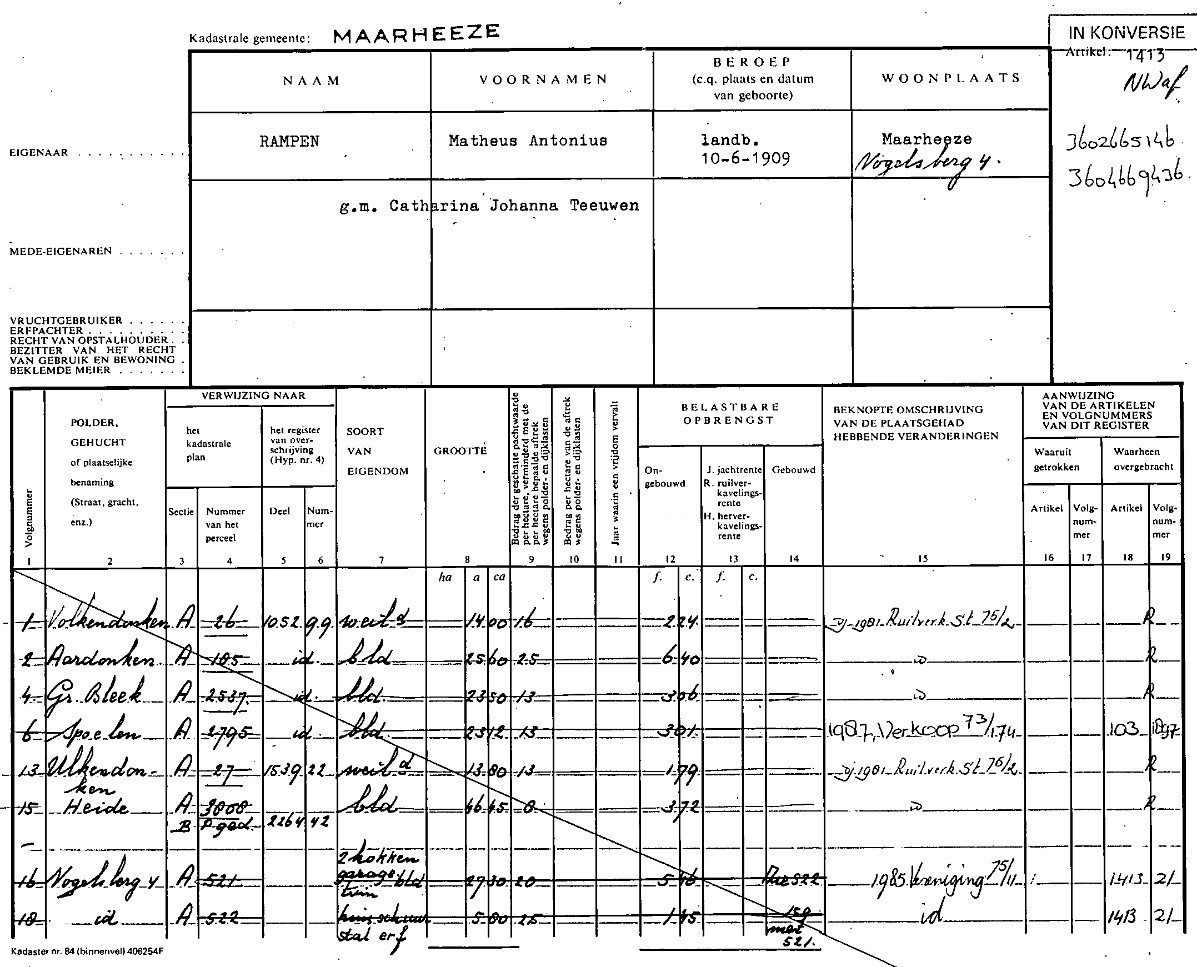 Kadastrale gemeente: MAARHEEZE
IN KONVERSIE
Artikel: 1413
NWaf
NAAM
VOORNAMEN
BEROEP
(c.q. plaats en datum
van geboorte)
WOONPLAATS
EIGENAAR
RAMPEN
Matheus Antonius
landb.
10-6-1909
Maarheeze
Vogelsberg 4.
3602665146
3604669436
g.m. Catharina Johanna Teeuwen
MEDE-EIGENAREN
VRUCHTGEBRUIKER
ERFPACHTER
RECHT VAN OPSTALHOUDER
BEZITTER VAN HET RECHT
VAN GEBRUIK EN BEWONING
BEKLEMDE MEIER
Volgnummer
POLDER,
GEHUCHT
of plaatselijke
benaming
(Straat, gracht,
enz.)
VERWIJZING NAAR
het
kadastrale
plan
Sectie
Nummer
van het
perceel
het register
van over-
schrijving
(Hyp. nr. 4)
Deel
Num-
mer
SOORT
VAN
EIGENDOM
GROOTTE
Bedrag der geschatte pachtwaarde
per hectare, verminderd met de
per hectare bepaalde aftrek
wegens polder- en dijklasten
Bedrag per hectare van de aftrek
wegens polder- en dijklasten
Jaar waarin een vrijdom vervalt
BELASTBARE
OPBRENGST
On-
gebouwd
J. jachtrente
R. ruilver-
kavelings-
rente
H. herver-
kavelings-
rente
Gebouwd
BEKNOPTE OMSCHRIJVING
VAN DE PLAATSGEHAD
HEBBENDE VERANDERINGEN
AANWIJZING
VAN DE ARTIKELEN
EN VOLGNUMMERS
VAN DIT REGISTER
Waaruit
getrokken
Waarheen
overgebracht
Artikel
Volg-
num-
mer
Artikel
Volg-
num-
mer
1 2 3 4 5 6 7 8 9 10 11 12 13 14 15 16 17 18 19
ha a ca f. c. f. c.
1 Volkendonken A 26 1052 99 weild 14 00 16 2 24 dj 1981 Ruilverk. St 75/2 R
2 Aardonken A 185 id. bld 25 60 25 6 40 id R
4 Gr. Bleek A 2537 id. bld 23 50 13 3 06 id R
6 Spoelen A 2795 id. bld 23 12 13 3 01 1987, Verkoop 73/174 103 1897
13 Ulkendon- A 27 1539 22 weild 13 80 13 1 79 dj 1981 Ruilverk. St 75/2 R
ken
15 Heide A 3808 bld 46 45 8 3 72 id R
B P ged. 2264 42
2 hokken
garage
16 Vogelsberg 4 A 521 bld 27 30 20 5 46 522 1985 Vereniging 75/11 1413 21
tuin
18 id A 522 huis schuur 5 80 25 1 45 id 1413 21
stal erf
met
521.
Kadaster nr. 84 (binnenvel) 406254F